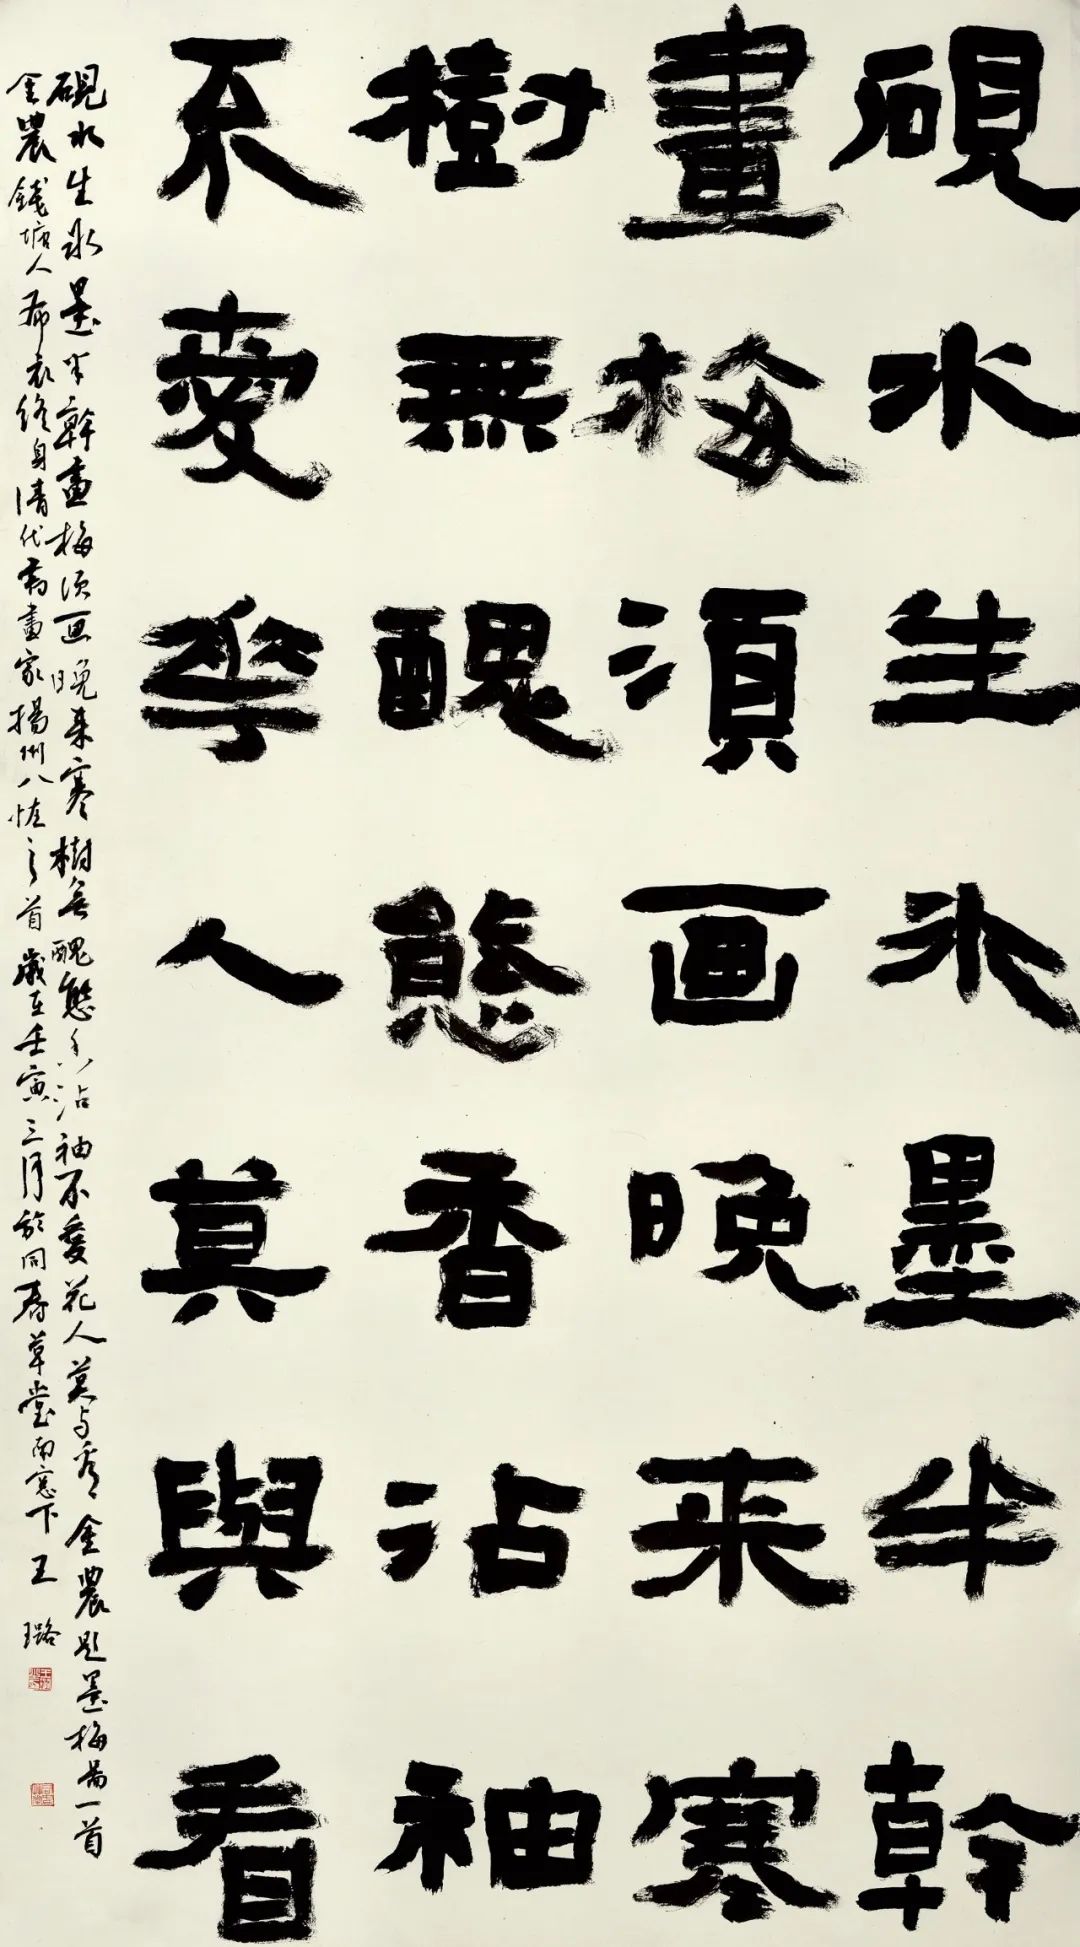 硯水生氷墨半幹
畫梅須画晚来寒
樹無醜態香沾袖
不愛華人莫與看
硯水生氷墨半幹畫梅須画晚来寒樹無醜態香沾袖不愛花人莫与看金農題墨梅圖一首
金農錢塘人布衣終身清代書畫家揚州八怪之首歲在壬寅三月於同春草堂雨窓下王璐